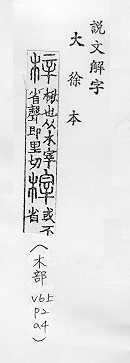 說文解字
大徐本
梓 楸也从木宰
省聲即里切 榟 或不
省
(木部
v6上
p2
a4)